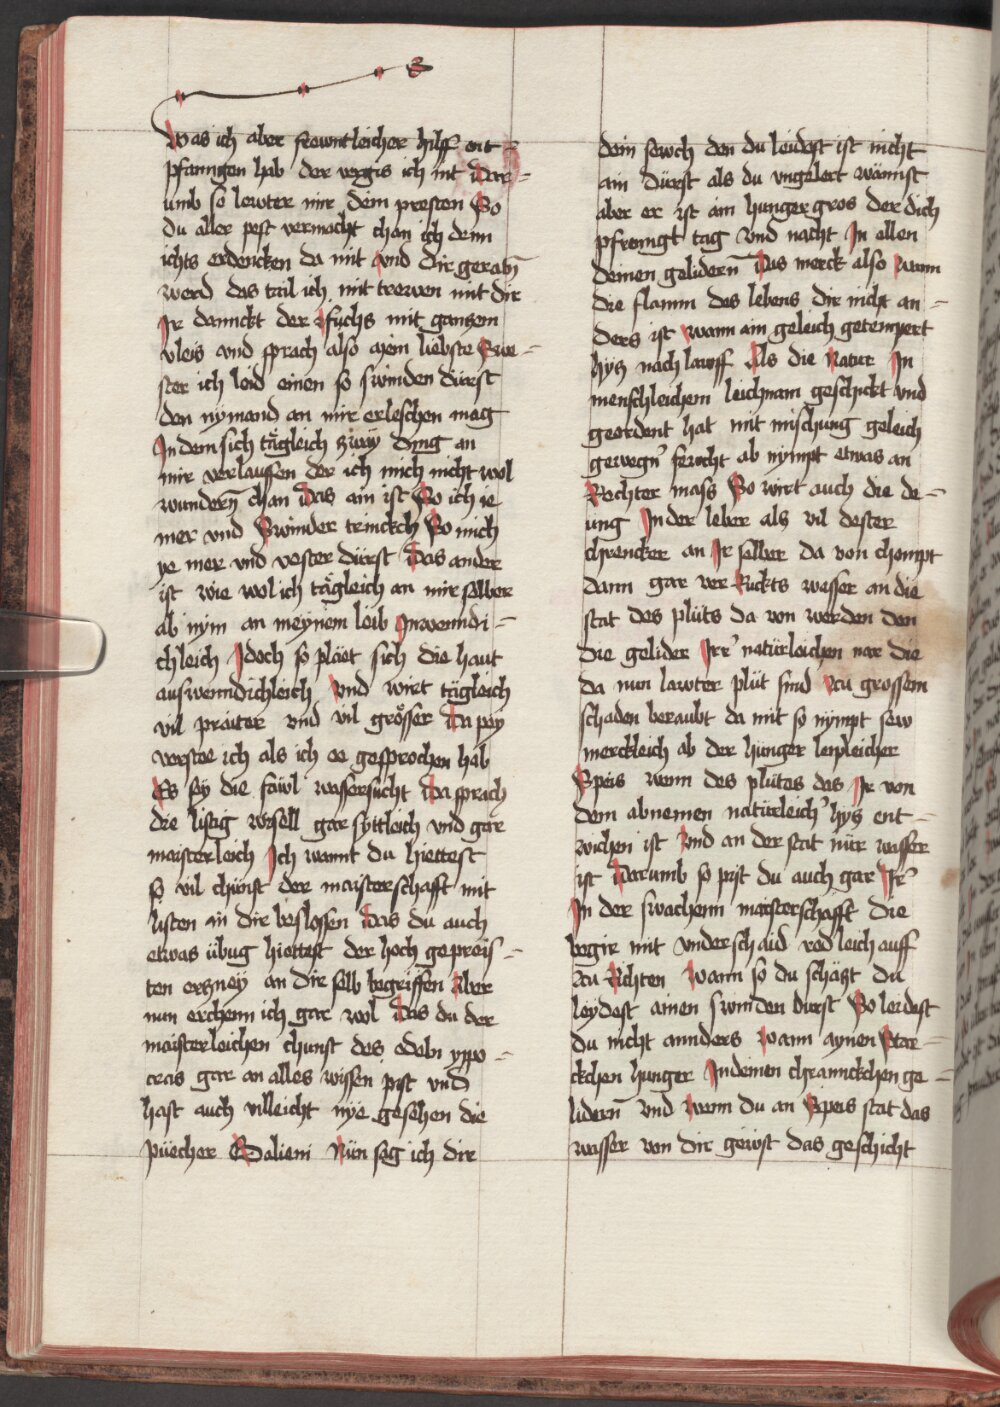 Was ich aber frewntleicher hilff ent=
pfanngen hab der vergis ich nit Dar=
umb so lewter mir dein presten So
du aller pest vermacht chan ich denn
ichts erdencken da mit vnd dir geraten
werd das tail ich mit trewen mit dir
Ir dannckt der fuchs mit ganczem
vleis vnd sprach also mein liebste Swe=
ster ich leid einen so swinden dürst
den nymand an mir erleschen mag
In dem sich tägleich zway ding an
mir verlauffen der ich mich nicht wol
wunderen chan Das ain ist So ich ie
mer vnd Swinder trinckch So mich
ye mer vnd vester dürst Das ander
ist wie wol ich tägleich an mir selber
ab nym an meynem leib Inwenndi=
chleich Idoch so pläet sich die haut
auswenndichleich vnd wirt tägleich
vil praiter vnd vil grösser Da pey
verstee ich als ich ee gesprochen hab
Es sey die fawl wassersucht Da sprach
die listig wisell gar syttleich vnd gar
maisterleich Ich wannt du hiettest
so vil chünst der maisterschafft mit
listen in dir beslossen Das du auch
etwas übug hiettest der hoch gepreis=
ten erczney an dir selb begriffen Aber
nun erchenn ich gar wol Das du der
maisterleichen chunst des edeln ypo=
cras gar an alles wissen pist vnd
hast auch villeicht nye gesehen die
püecher Galieni Nün sag ich dir
dein sewch den du leidest ist nicht
ain dürst als du vngelert wännst
aber er ist ain hunger gros der dich
pfrenngt tag vnd nacht In allen
deinen gelidern Das merck also wann
die flamm des lebens dir nicht an=
ders ist wann ain geleich getempert
hycz nach lauff Als die Natur In
menschleichem leichnam geschickt vnd
geordent hat mit mischung geleich
gewegner fewcht ab nympt etwas an
Rechter mass So wirt auch die de=
ung In der leber als vil dester
chrencker an Ir selber da von chompt
dann gar ver Ruckts wasser an die
stat des plüts da von werden den
die gelider Irer natürleichen nar die
da nun lawter plüt sind zu grossem
schaden beraubt da mit so nympt sew
merckleich ab der hünger leipleicher
Speis wenn des plütes das Ir von
dem abnemen natürleicher hycz ent=
wichen ist Vnd an der stat nür wasser
ist Darumb so pist du auch gar Irr
In der swachenn maisterschafft die
begir mit vnderschaid redleich auff
zu Richten Wann so du schäczt du
leydest ainen swinden durst So leidest
du nicht annders wann aynen Star=
ckchen hunger In deinen chranckchen ge=
lidern vnd wenn du an Speis stat das
wasser von dir gewst das geschicht